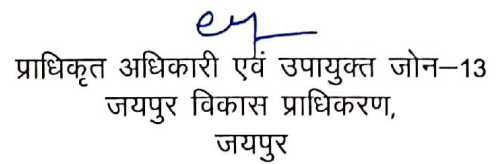 प्राधिकृत अधिकारी एवं उपायुक्त जोन–13
जयपुर विकास प्राधिकरण,
जयपुर